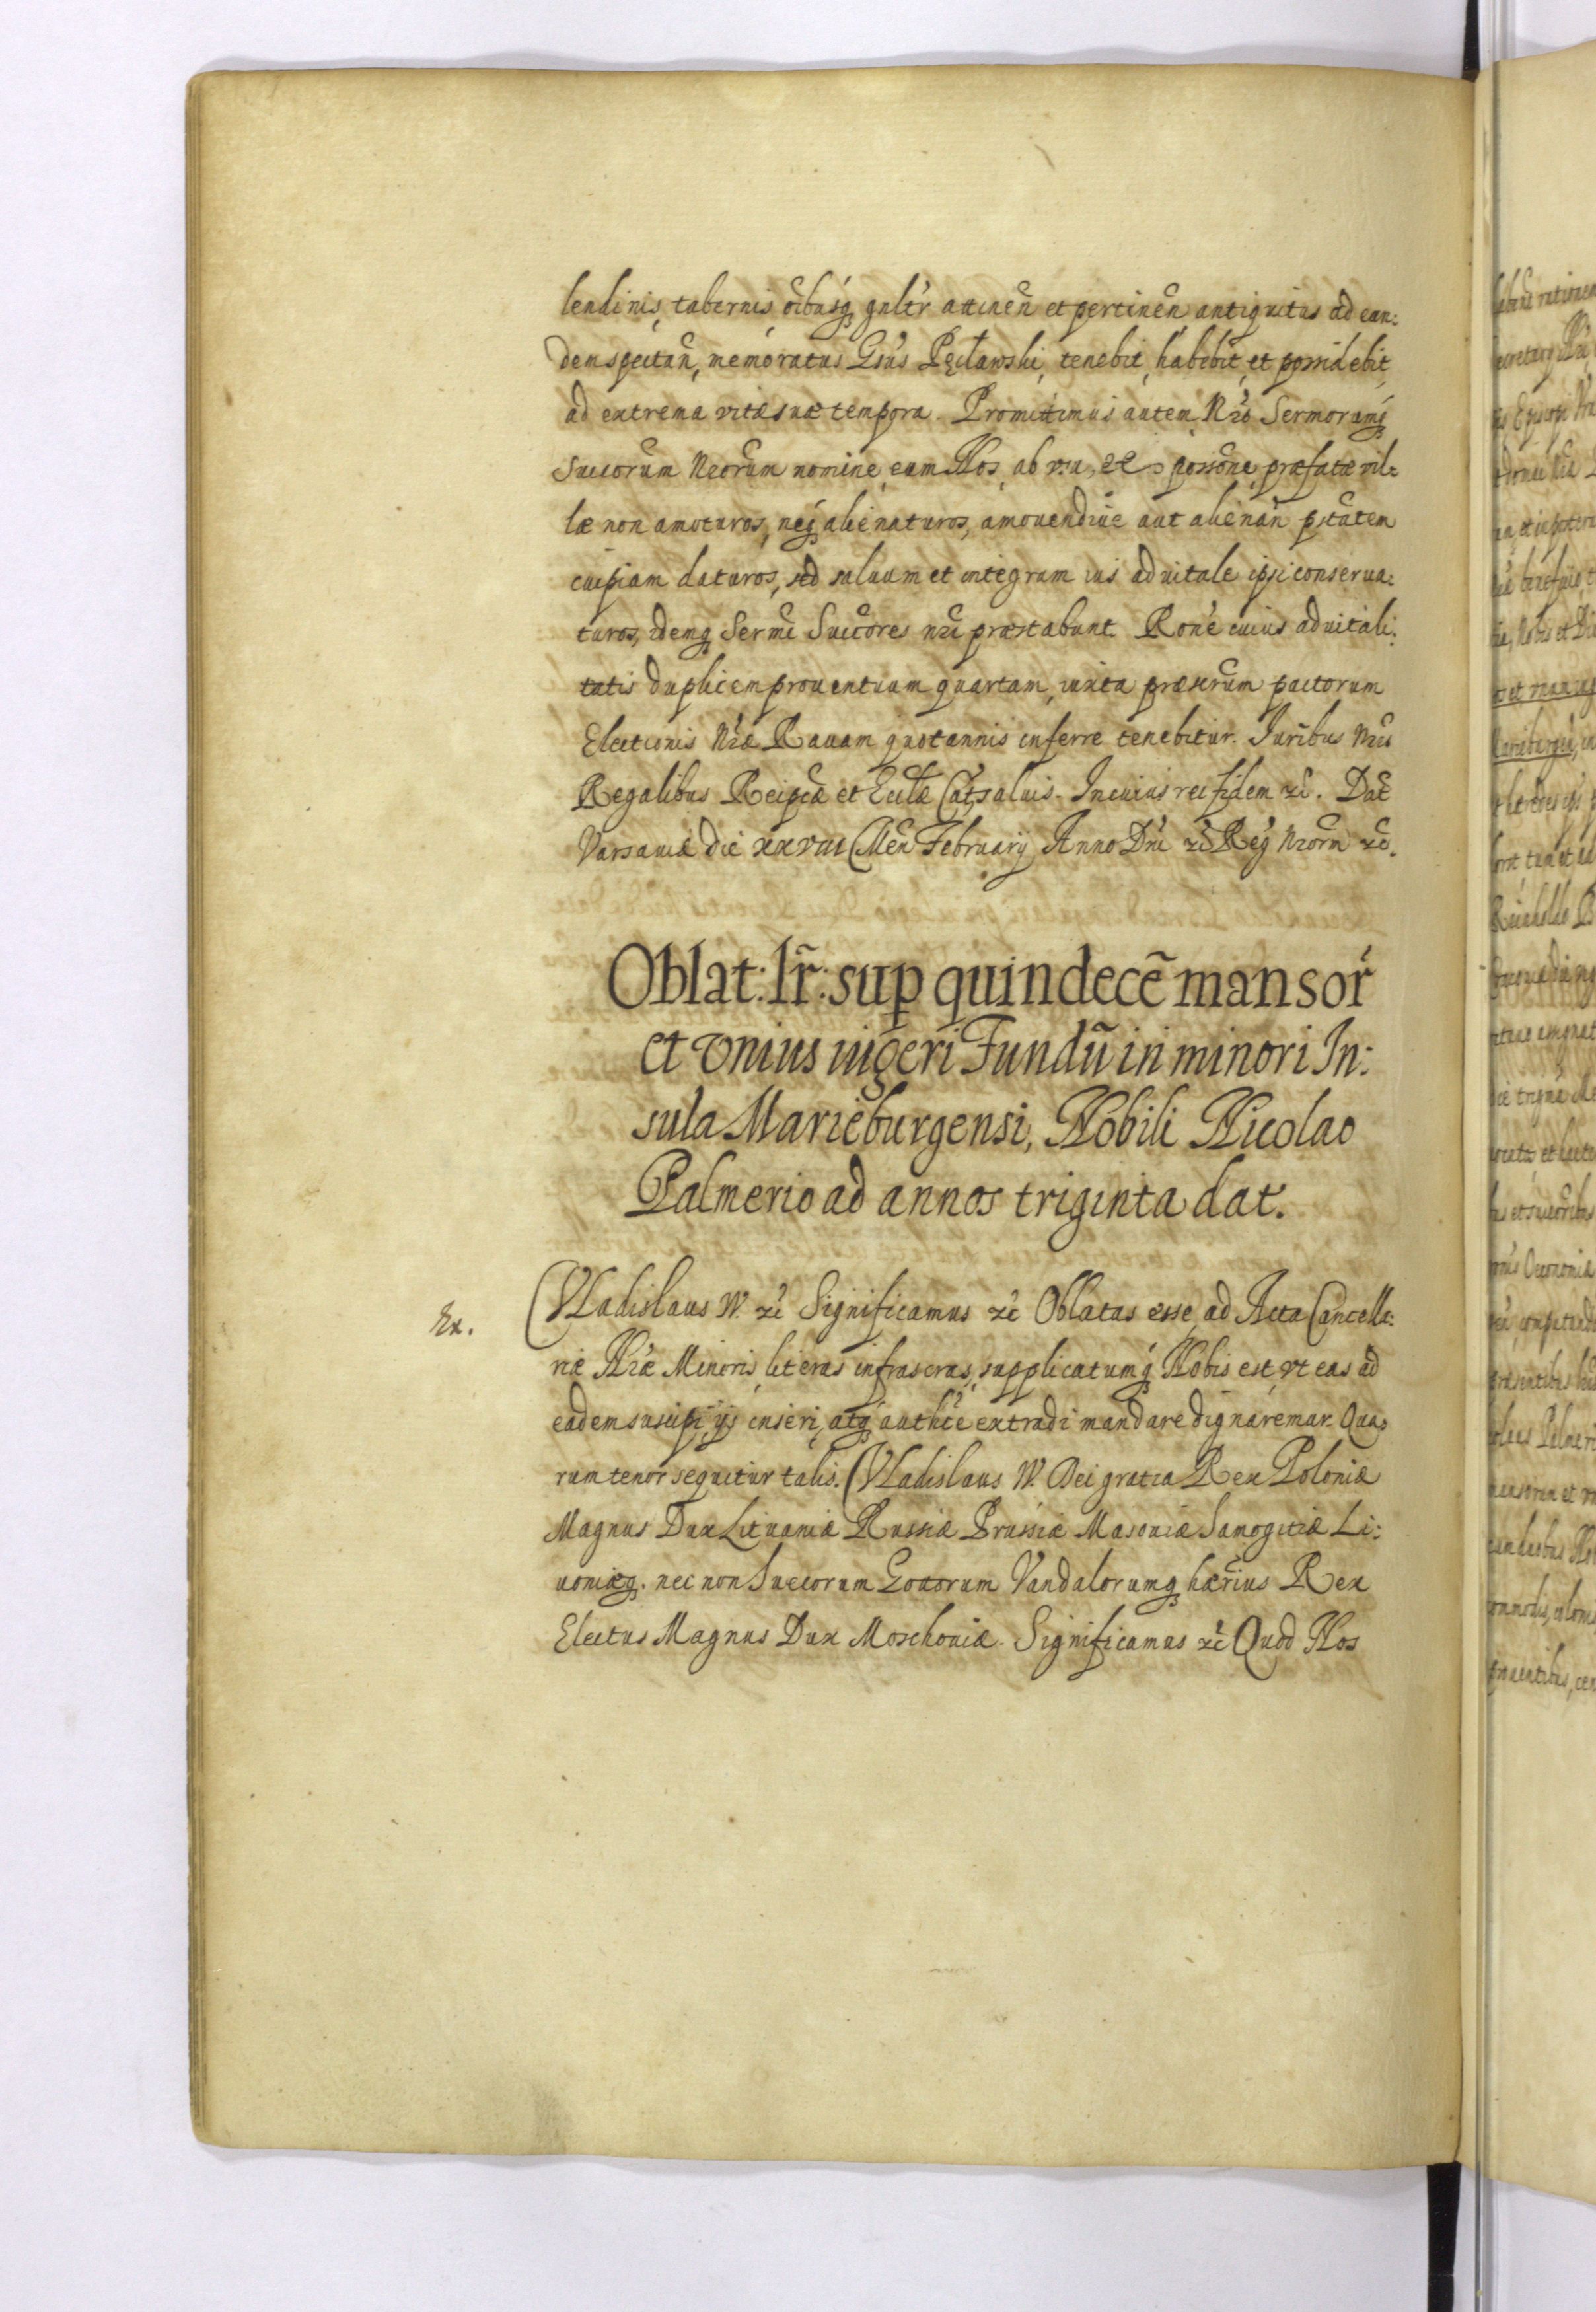 lendinis, tabernis oĩbusq gnlt̃r attinen̄ et pertinen̄ antiquitus ad ean:
dem spectan̄, memoratus Gsus Pęcławski, tenebit, habebit, et possidebit
ad extrema vitæ suæ tempora. Promittimus autem Nr̃o Sermorumq
Succorum Nr̃orum nomine, eum Nos, ab usu, et possõne, præfatæ vil:
læ non amoturos, neq alienaturos, amovendive aut alienan̄ ptãtem
cuipiam daturos, sed salvum et integrum ius advitale ipsi conserva:
turos, idemq Sermi Succores nr̃i præstabunt. Rõne cuius advitali:
tatis duplicem proventuum quartam, iuxta præscrũm pactorum
Electionis Nr̃æ Ravam quotannis inferre tenebitur. Iuribus Nr̃is
Regalibus Reipcæ et Eccl̃æ Cat̃s salvis. In cuius rei fidem ec̃. Dat̃
Varsaviæ die xxviii Men̄ February Anno Dñi ec̃ Reg̃ Nr̃orm ec̃.
Oblat: lr̃: sup quindecẽ mansor̃
et vnius iug̃eri Fundũ in minori In:
sula Marieburgensi, Nobili Nicolao
Palmerio ad annos triginta dat.
Ex.
Vladislaus IV. ec̃ Significamus ec̃ Oblatas esse, ad Acta Cancella:
riæ Nr̃æ Minoris, literas infrascras, supplicatumq Nobis est, vt eas ad
eadem suscipi, ijs inseri, atq authc̃e extradi mandare dignaremur. Qua:
rum tenor sequitur talis. Vladislaus IV. Dei gratia Rex Poloniæ
Magnus Dux Lituaniæ Russiæ Prussiæ Masoviæ Samogitiæ Li:
voniæq. nec non Suecorum Gottorum Vandalorumq hær̃ius Rex
Electus Magnus Dux Moschoviæ. Significamus ec̃ Quod Nos